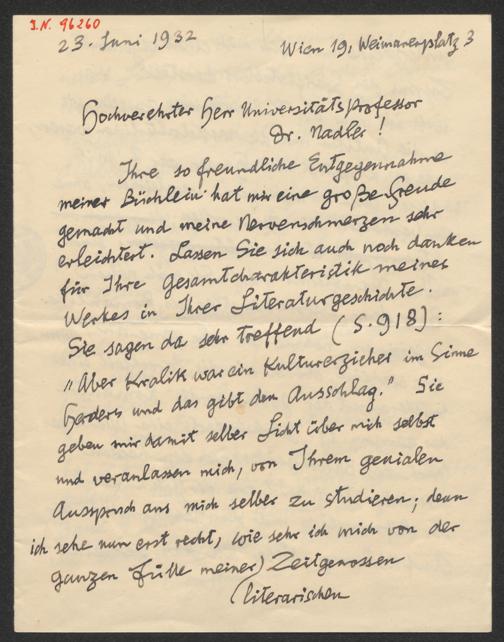 J.N. 96260
23. Juni 1932 Wien 19, Weimarerplatz 3
Hochverehrter Herr Universitätsprofessor
Dr. Nadler!
Ihre so freundliche Entgegennahme
meiner Büchlein hat mir eine große Freude
gemacht und meine Nervenschmerzen sehr
erleichtert. Lassen Sie sich auch noch danken
für Ihre Gesamtcharakteristik meines
Werkes in Ihrer Literaturgeschichte.
Sie sagen da sehr treffend (S. 918):
"Aber Kralik war ein Kulturerzieher im Sinne
Herders und das gibt den Ausschlag." Sie
geben mir damit selber Licht über mich selbst
und veranlassen mich, von Ihrem genialen
Ausspruch aus mich selber zu studieren; denn
ich sehe nun erst recht, wie sehr ich mich von der
ganzen Fülle meiner) Zeitgenossen
(literarischen